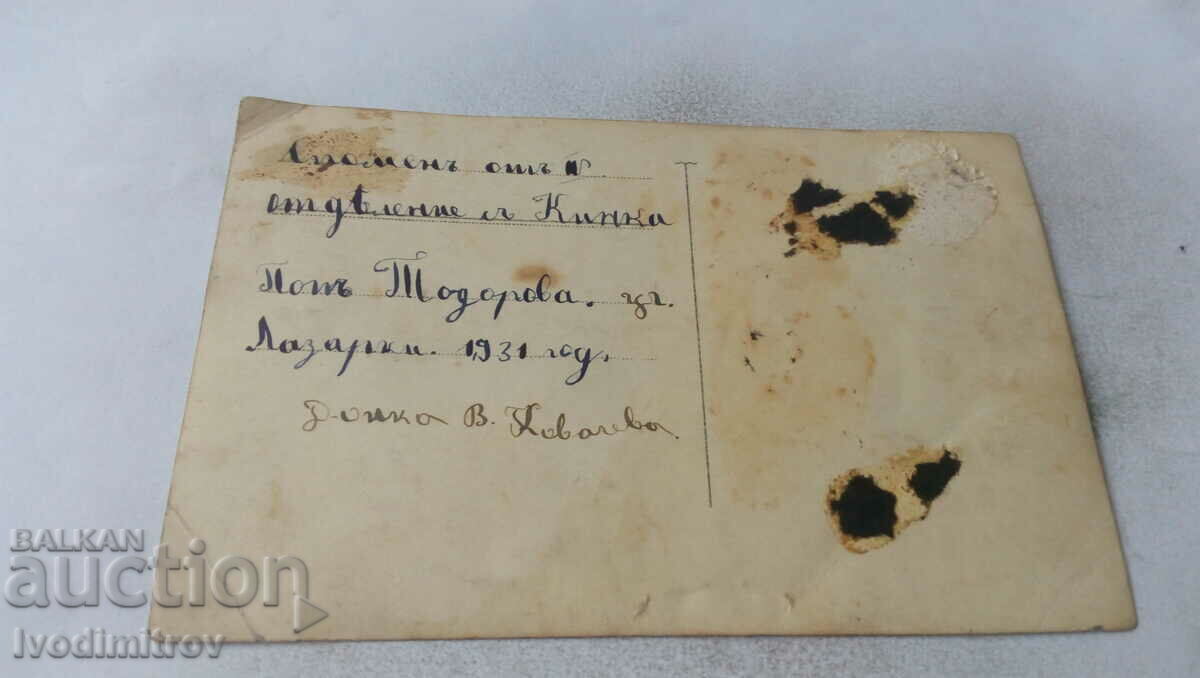 Споменъ отъ IV.
отдѣление съ Кинка
Попъ Тодорова.
Лазарки. 1931 год.
Донка В. Ковачева.
BALKAN
auction
Ivodimitrov